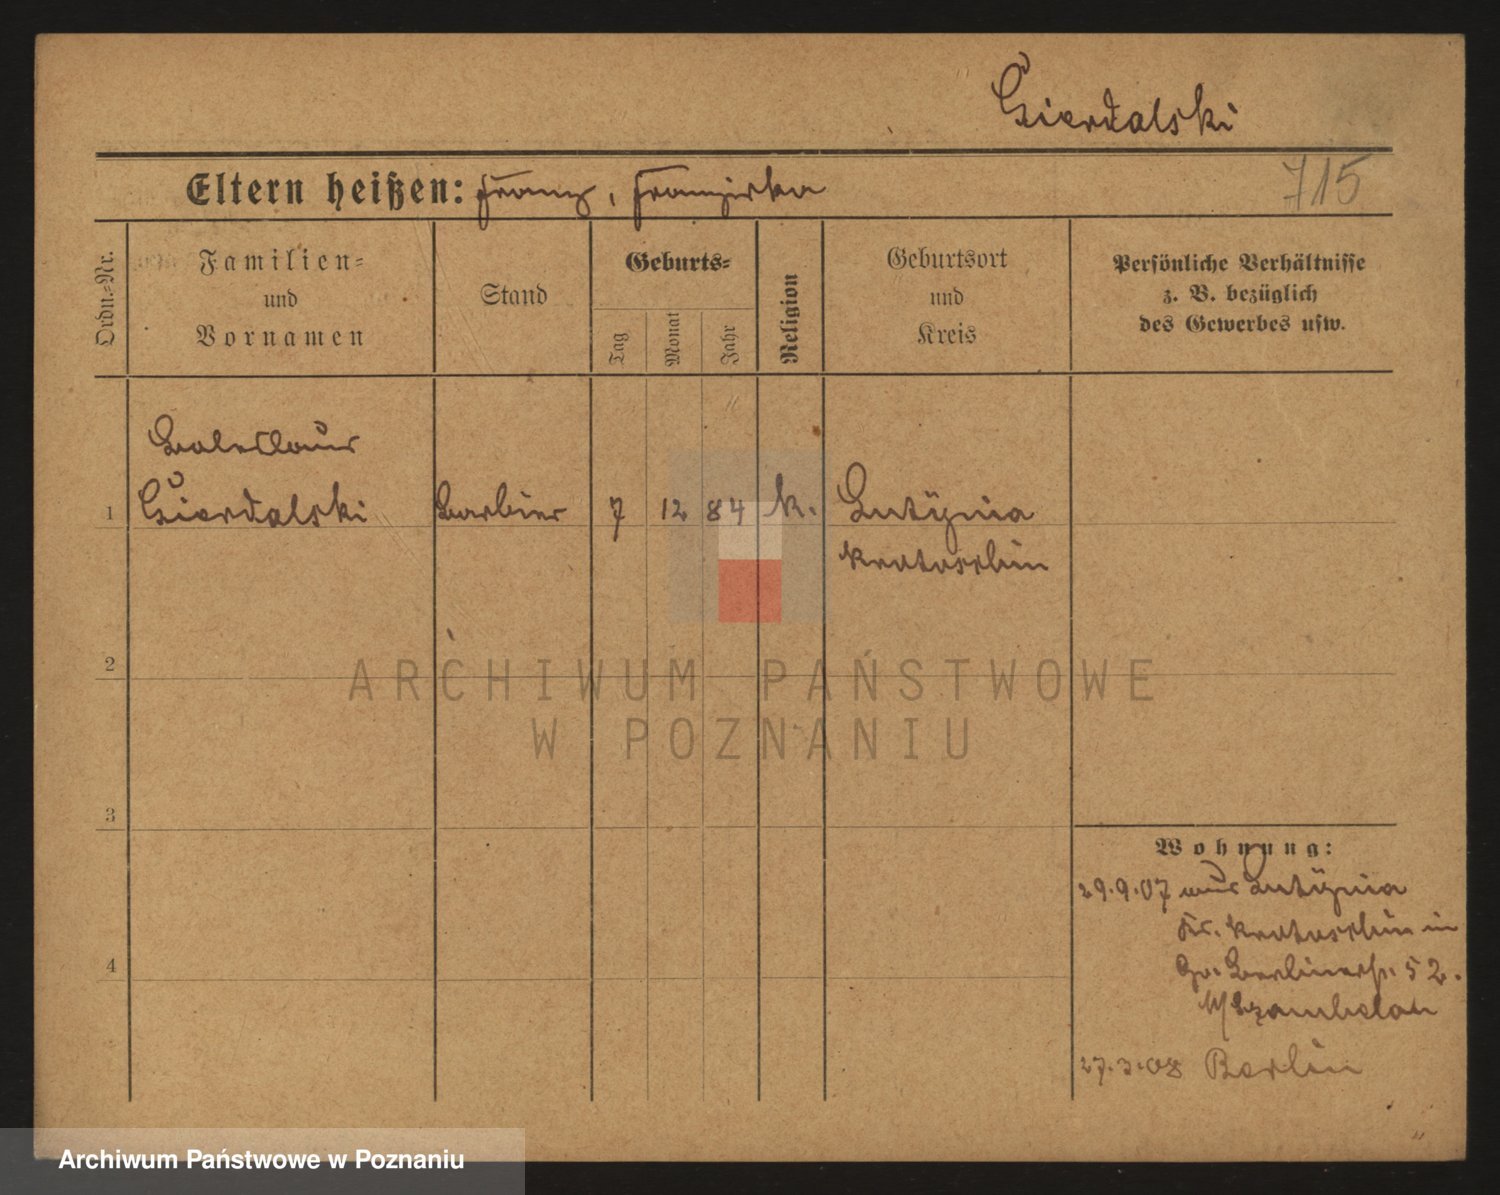 Gierdalski
Eltern heißen: Franz, Franziska
715
Ordn.-Nr.
Familien-
und
Vornamen
Stand
Geburts-
Tag
Monat
Jahr
Religion
Geburtsort
und
Kreis
Persönliche Verhältnisse
z. B. bezüglich
des Gewerbes usw.
Boleslaus
1 Gierdalski Barbier 7 12 84 k. Lutynia
Krotoschin
2
ARCHIWUM PAŃSTWOWE
W POZNANIU
3
Wohnung:
29.9.07 aus Lutynia
Kr. Krotoschin in
Gr. Berlinerstr. 52.
4
27.3.08 Berlin
Archiwum Państwowe w Poznaniu